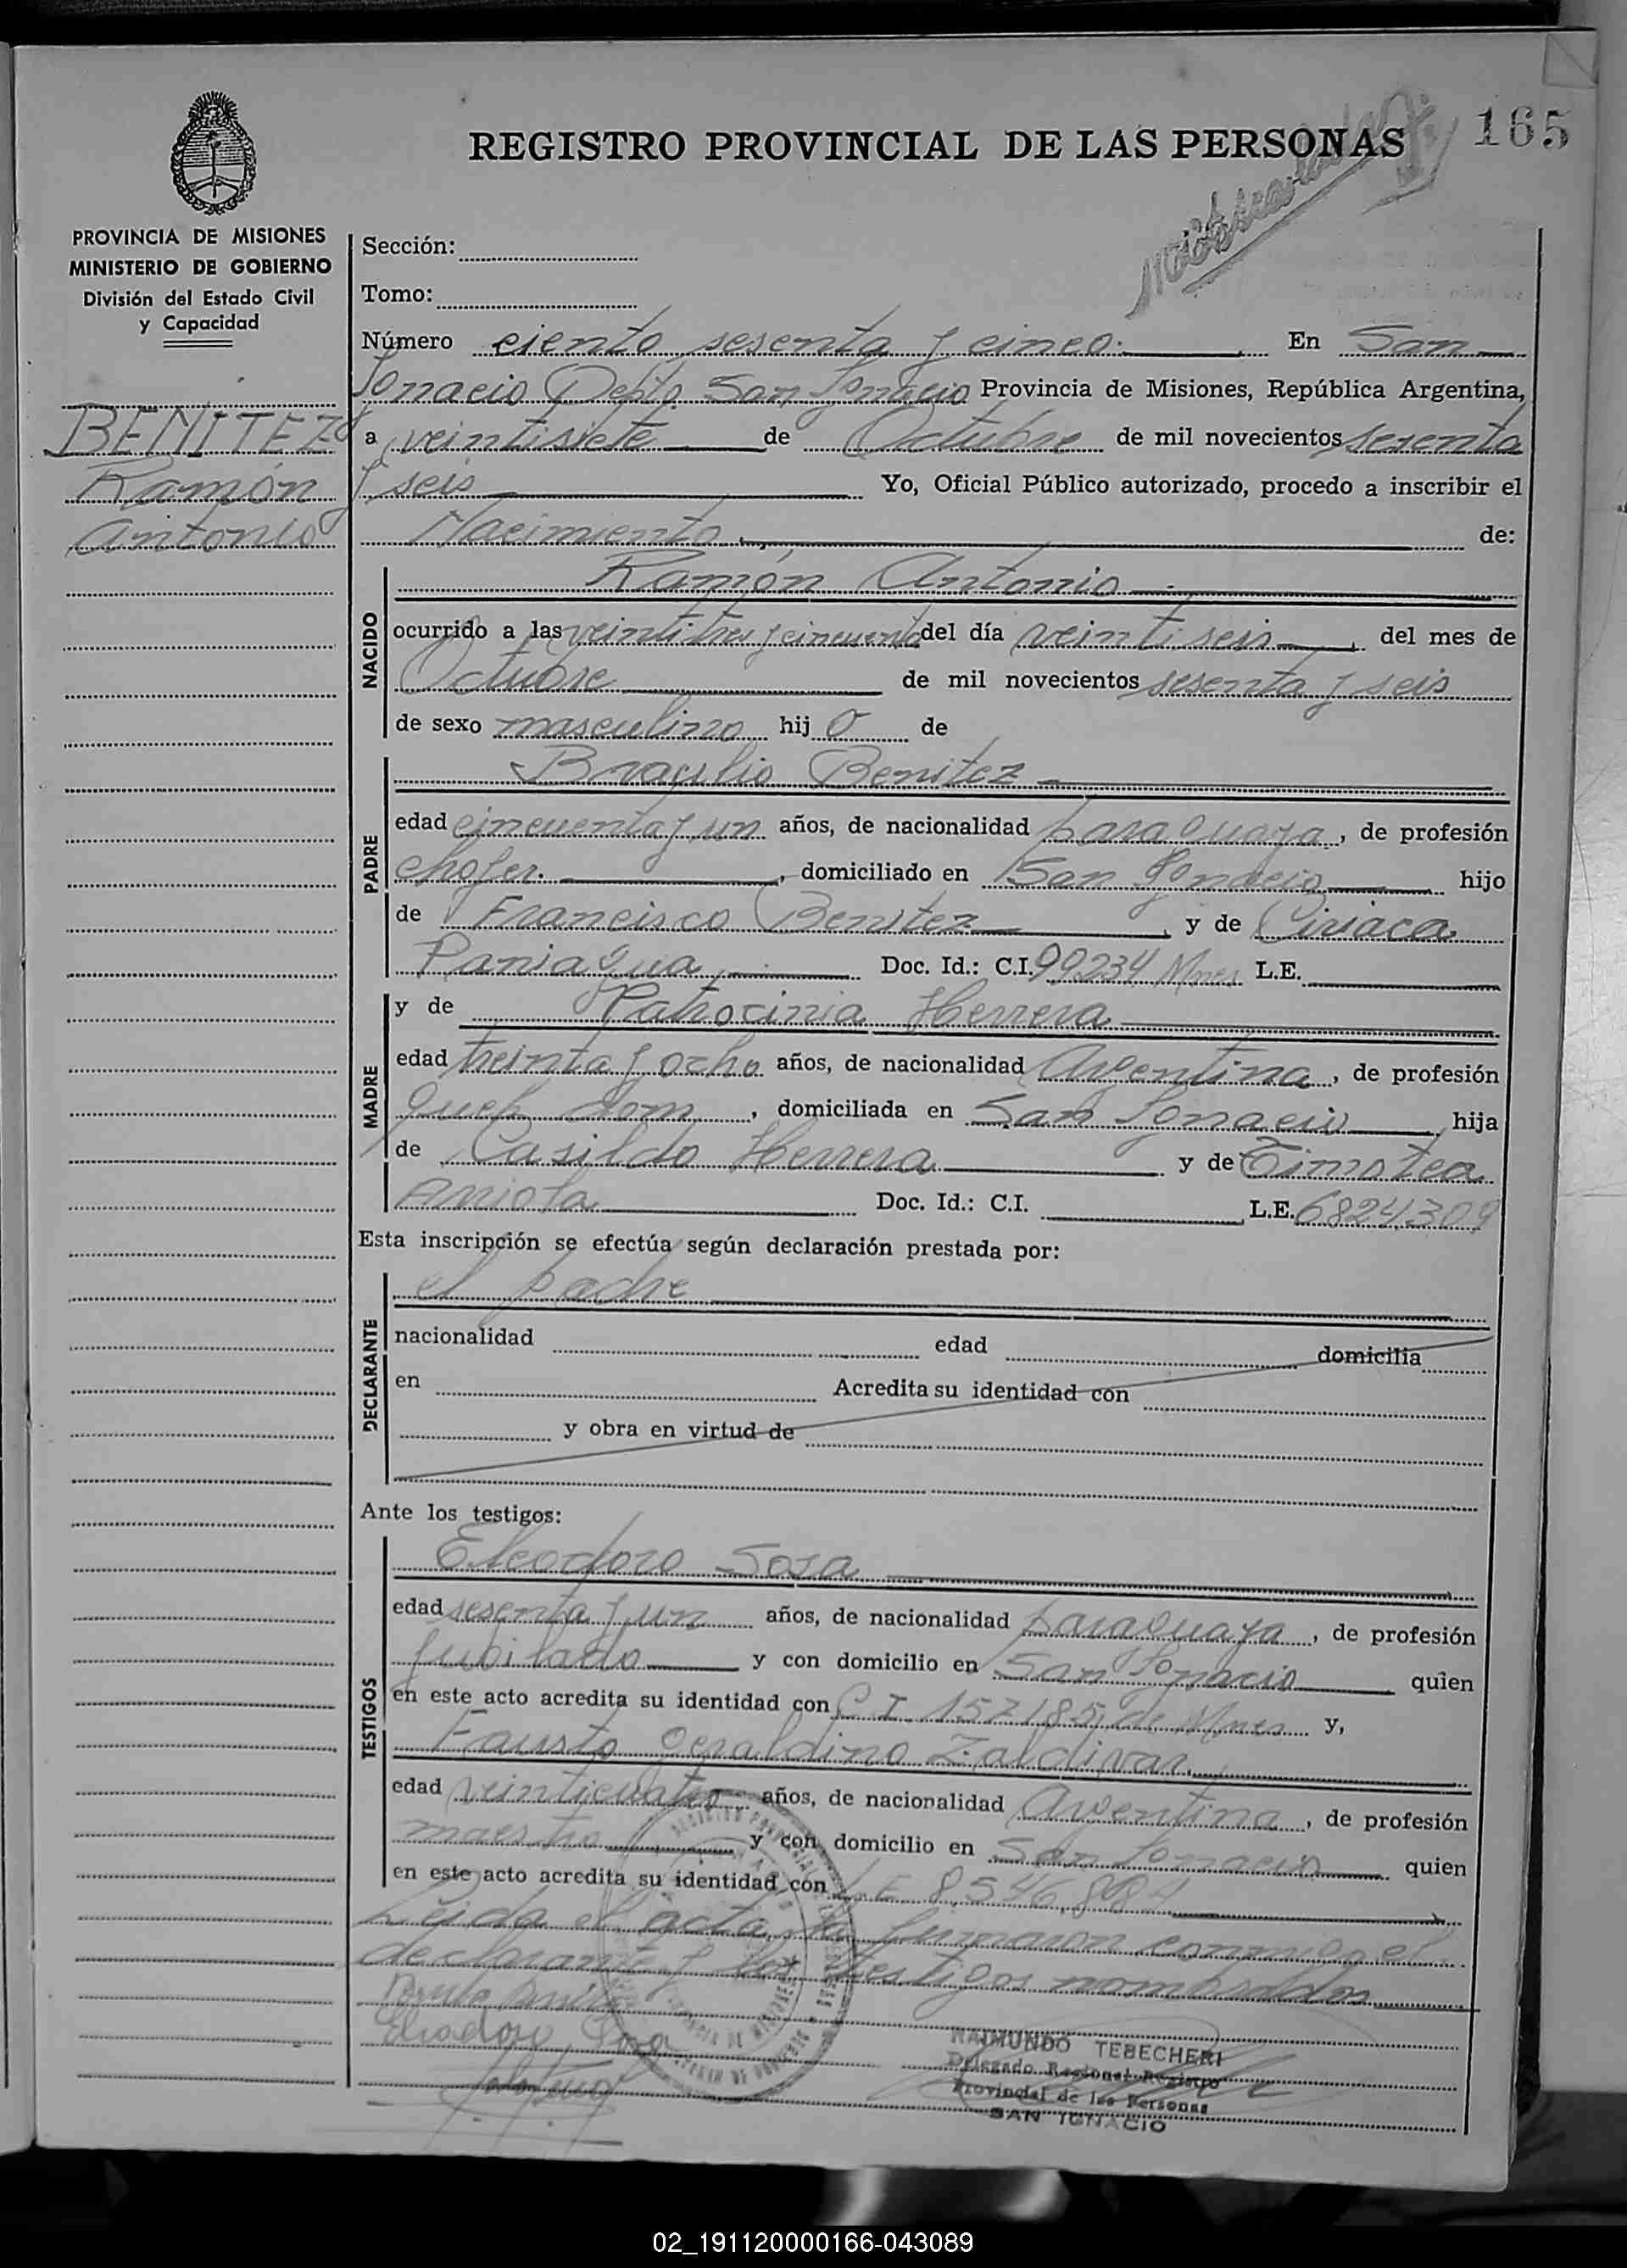 165
REGISTRO PROVINCIAL DE LAS PERSONAS
PROVINCIA DE MISIONES
MINISTERIO DE GOBIERNO
División del Estado Civil
y Capacidad
BENITEZ
Ramón
Antonio
Sección:
Tomo:
Número ciento sesenta y cinco. En San
Ignacio Depto San Ignacio Provincia de Misiones, República Argentina,
a veintisiete de Octubre de mil novecientos sesenta
y seis Yo, Oficial Público autorizado, procedo a inscribir el
Nacimiento de:
NACIDO
Ramón Antonio
ocurrido a las veintitres y cincuenta del día veintiseis del mes de
Octubre de mil novecientos sesenta y seis
de sexo masculino hij o de
PADRE
Braulio Benitez
edad cincuenta y un años, de nacionalidad paraguaya, de profesión
chofer. , domiciliado en San Ignacio hijo
de Francisco Benitez y de Ciriaca
Paniagua Doc. Id.: C.I. 99234 Mnes L.E.
MADRE
y de Patrocinia Herrera
edad treinta y ocho años, de nacionalidad Argentina, de profesión
dom , domiciliada en San Ignacio hija
de Casildo Herrera y de Timotea
Arriola Doc. Id.: C.I. L.E. 6824309
Esta inscripción se efectúa según declaración prestada por:
DECLARANTE
el padre
nacionalidad edad domicilia
en Acredita su identidad con
y obra en virtud de
Ante los testigos:
TESTIGOS
Eleodoro Sosa
edad sesenta y un años, de nacionalidad paraguaya, de profesión
jubilado y con domicilio en San Ignacio quien
en este acto acredita su identidad con C I 157185 de Mnes y,
Fausto Geraldino Zaldivar
edad veinticuatro años, de nacionalidad Argentina, de profesión
maestro y con domicilio en San Ignacio quien
en este acto acredita su identidad con L E 8546884
Leida el acta la firmaron conmigo el
declarante y los testigos nombrados
Eleodoro Sosa
RAIMUNDO TEBECHERI
Delegado Regional Registro
Provincial de las Personas
SAN IGNACIO
02_191120000166-043089